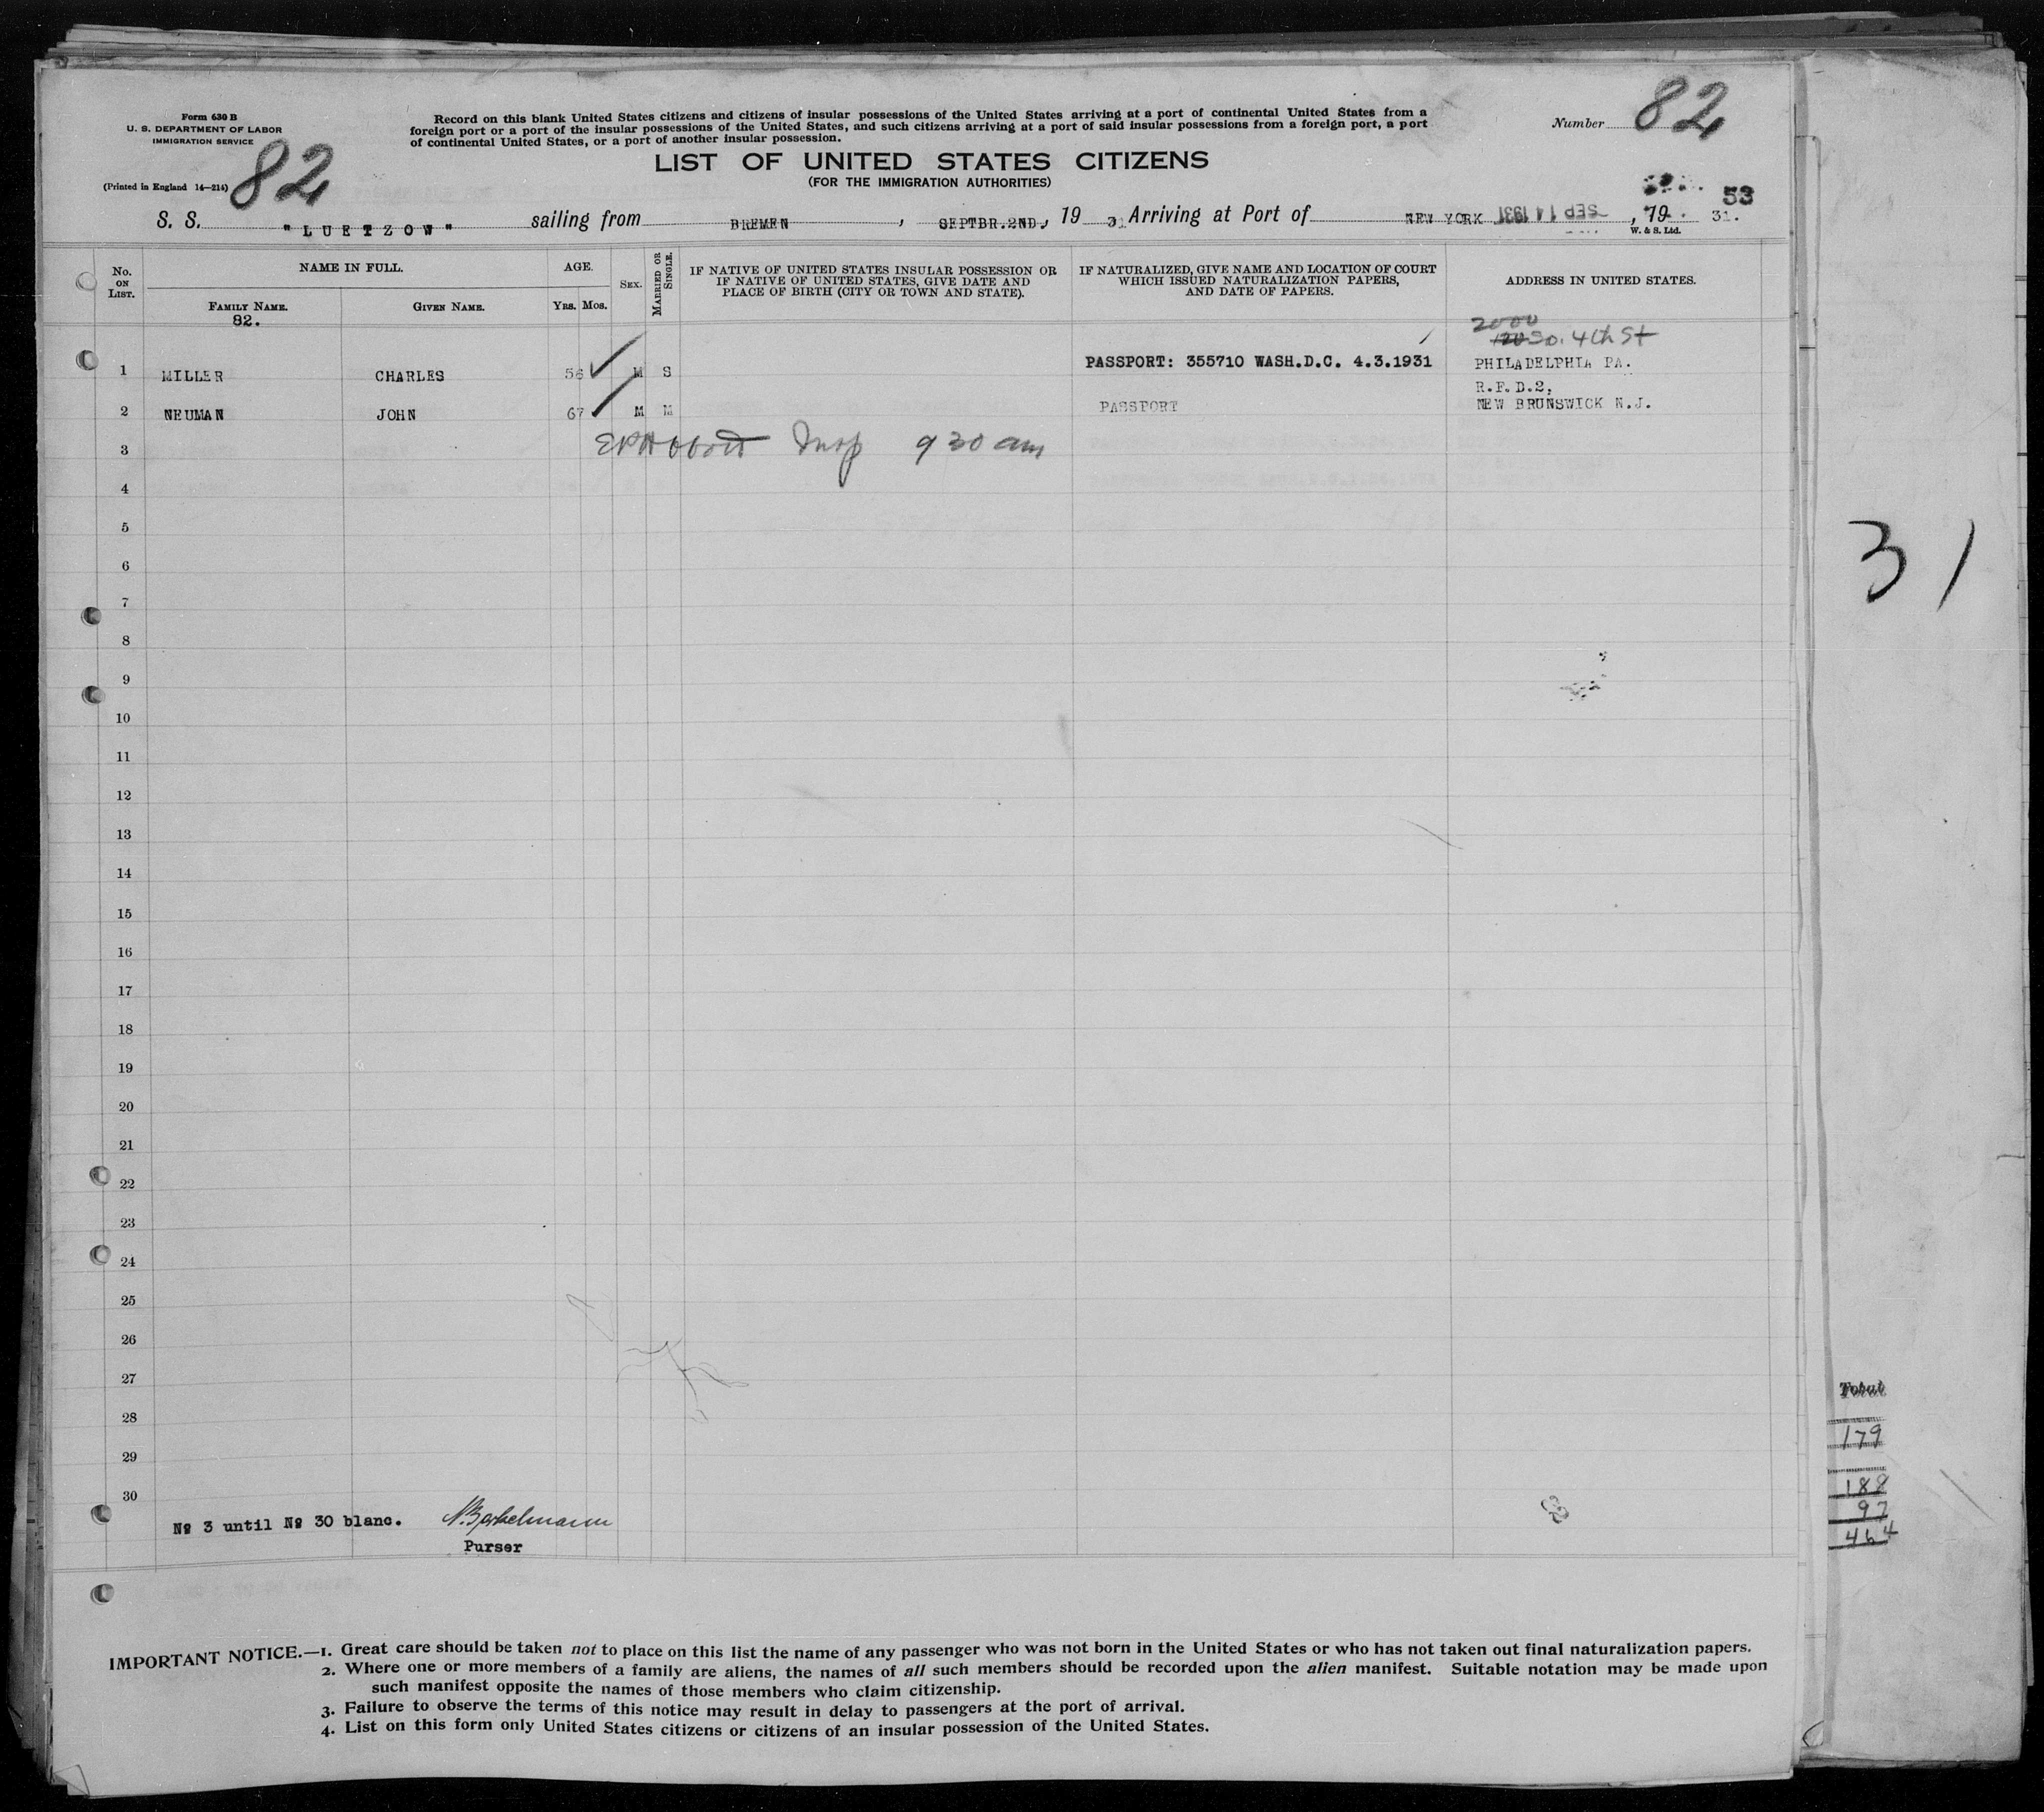 Form 630 B
U. S. DEPARTMENT OF LABOR
IMMIGRATION SERVICE
(Printed in England 14—214)
82
Record on this blank United States citizens and citizens of insular possessions of the United States arriving at a port of continental United States from a
foreign port or a port of the insular possessions of the United States, and such citizens arriving at a port of said insular possessions from a foreign port, a port
of continental United States, or a port of another insular possession.
Number 82
LIST OF UNITED STATES CITIZENS
(FOR THE IMMIGRATION AUTHORITIES)
53
S. S. "LUETZOW" sailing from BREMEN, SEPTBR.2ND., 19 31 Arriving at Port of NEW YORK SEP 14 1931, 19 31.
W. & S. Ltd.
No. ON LIST.
NAME IN FULL.
FAMILY NAME.
GIVEN NAME.
AGE.
YRS. MOS.
SEX.
MARRIED OR SINGLE.
IF NATIVE OF UNITED STATES INSULAR POSSESSION OR
IF NATIVE OF UNITED STATES, GIVE DATE AND
PLACE OF BIRTH (CITY OR TOWN AND STATE).
IF NATURALIZED, GIVE NAME AND LOCATION OF COURT
WHICH ISSUED NATURALIZATION PAPERS,
AND DATE OF PAPERS.
ADDRESS IN UNITED STATES.
82.
2000
So. 4th St
1 MILLER CHARLES 56 M S PASSPORT: 355710 WASH.D.C. 4.3.1931 PHILADELPHIA PA.
R.F.D.2,
2 NEUMAN JOHN 67 M M PASSPORT NEW BRUNSWICK N.J.
3 EPAbbott Insp 9 30 am
4
5
6
7
8
9
10
11
12
13
14
15
16
17
18
19
20
21
22
23
24
25
26
27
28
29
30
№ 3 until № 30 blanc.
Purser
31
Total
179
188
97
464
IMPORTANT NOTICE.—1. Great care should be taken not to place on this list the name of any passenger who was not born in the United States or who has not taken out final naturalization papers.
2. Where one or more members of a family are aliens, the names of all such members should be recorded upon the alien manifest. Suitable notation may be made upon
such manifest opposite the names of those members who claim citizenship.
3. Failure to observe the terms of this notice may result in delay to passengers at the port of arrival.
4. List on this form only United States citizens or citizens of an insular possession of the United States.